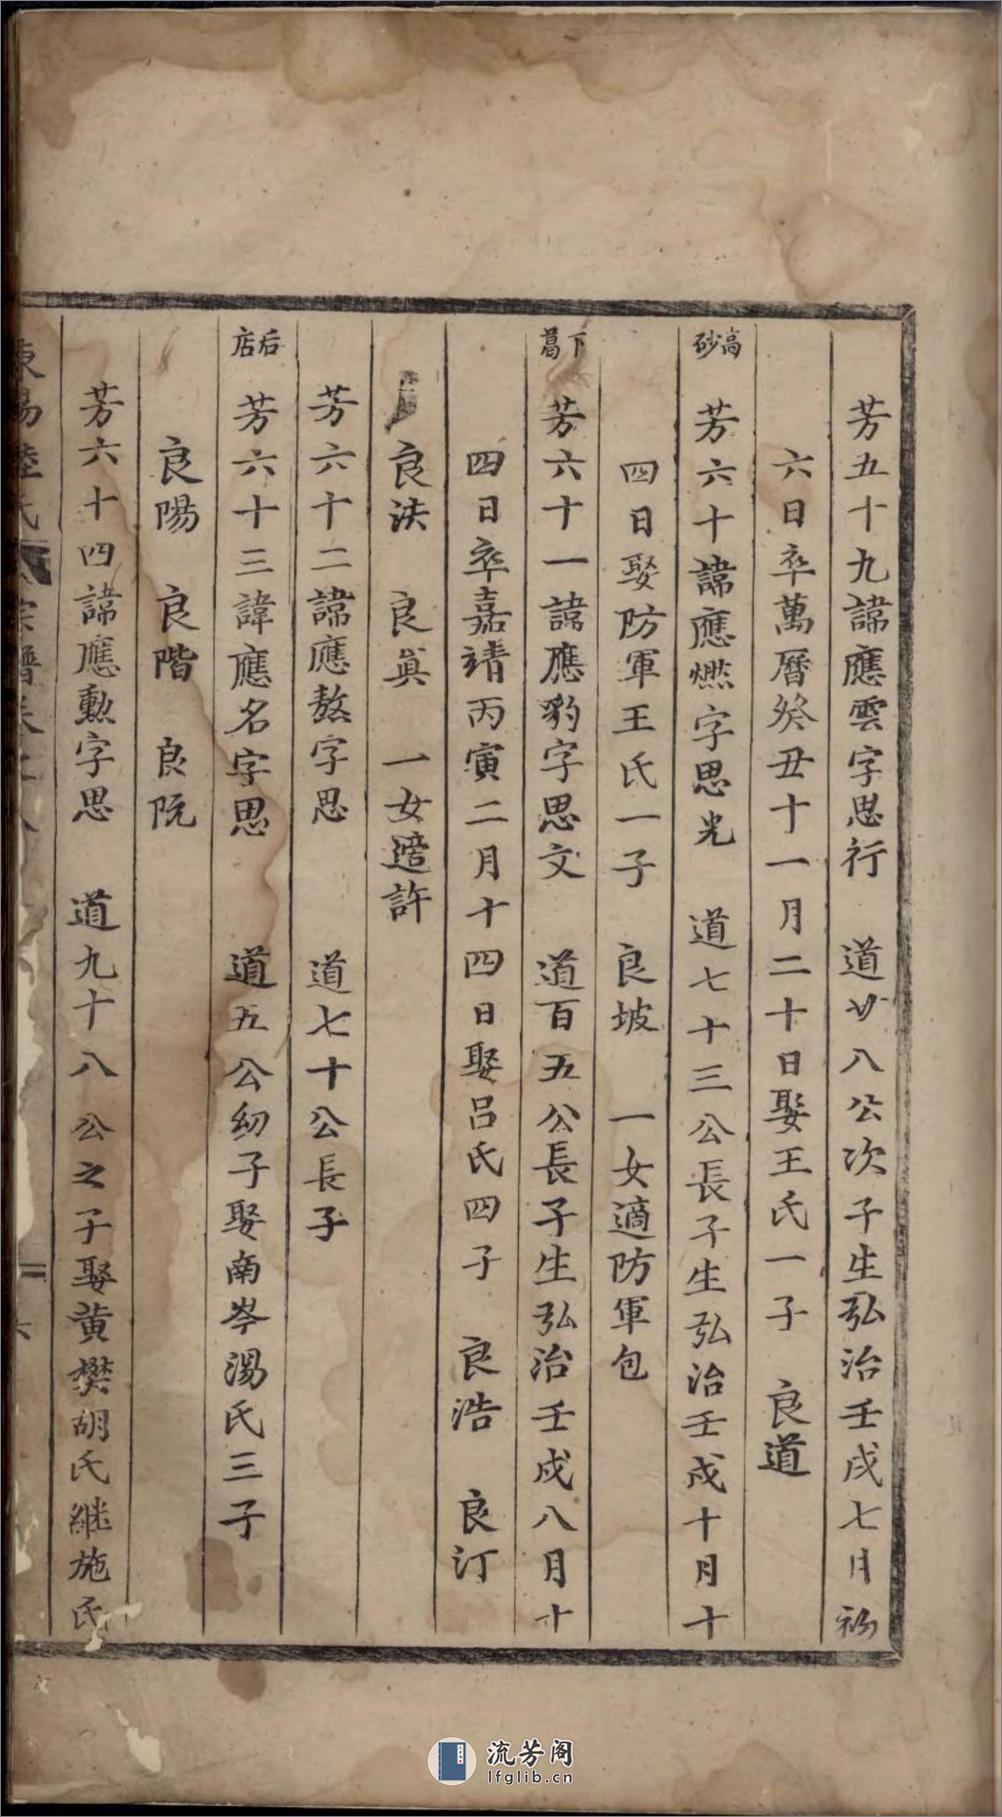 芳五十九諱應雲字思行　道廿八公次子生弘治壬戌七月初
六日卒萬曆癸丑十一月二十日娶王氏一子　良道
高砂
芳六十諱應燃字思光　道七十三公長子生弘治壬戌十月十
四日娶防軍王氏一子　良坡　一女適防軍包
下葛
芳六十一諱應豹字思文　道百五公長子生弘治壬戌八月十
四日卒嘉靖丙寅二月十四日娶呂氏四子　良浩　良汀
良洪　良真　一女適許
芳六十二諱應熬字思　道七十公長子
后店
芳六十三諱應名字思　道五公幼子娶南岑湯氏三子
良陽　良階　良阮
芳六十四諱應勳字思　道九十八公之子娶黄樊胡氏継施氏
東陽陸氏宗譜卷之
流芳阁
lfglib.cn